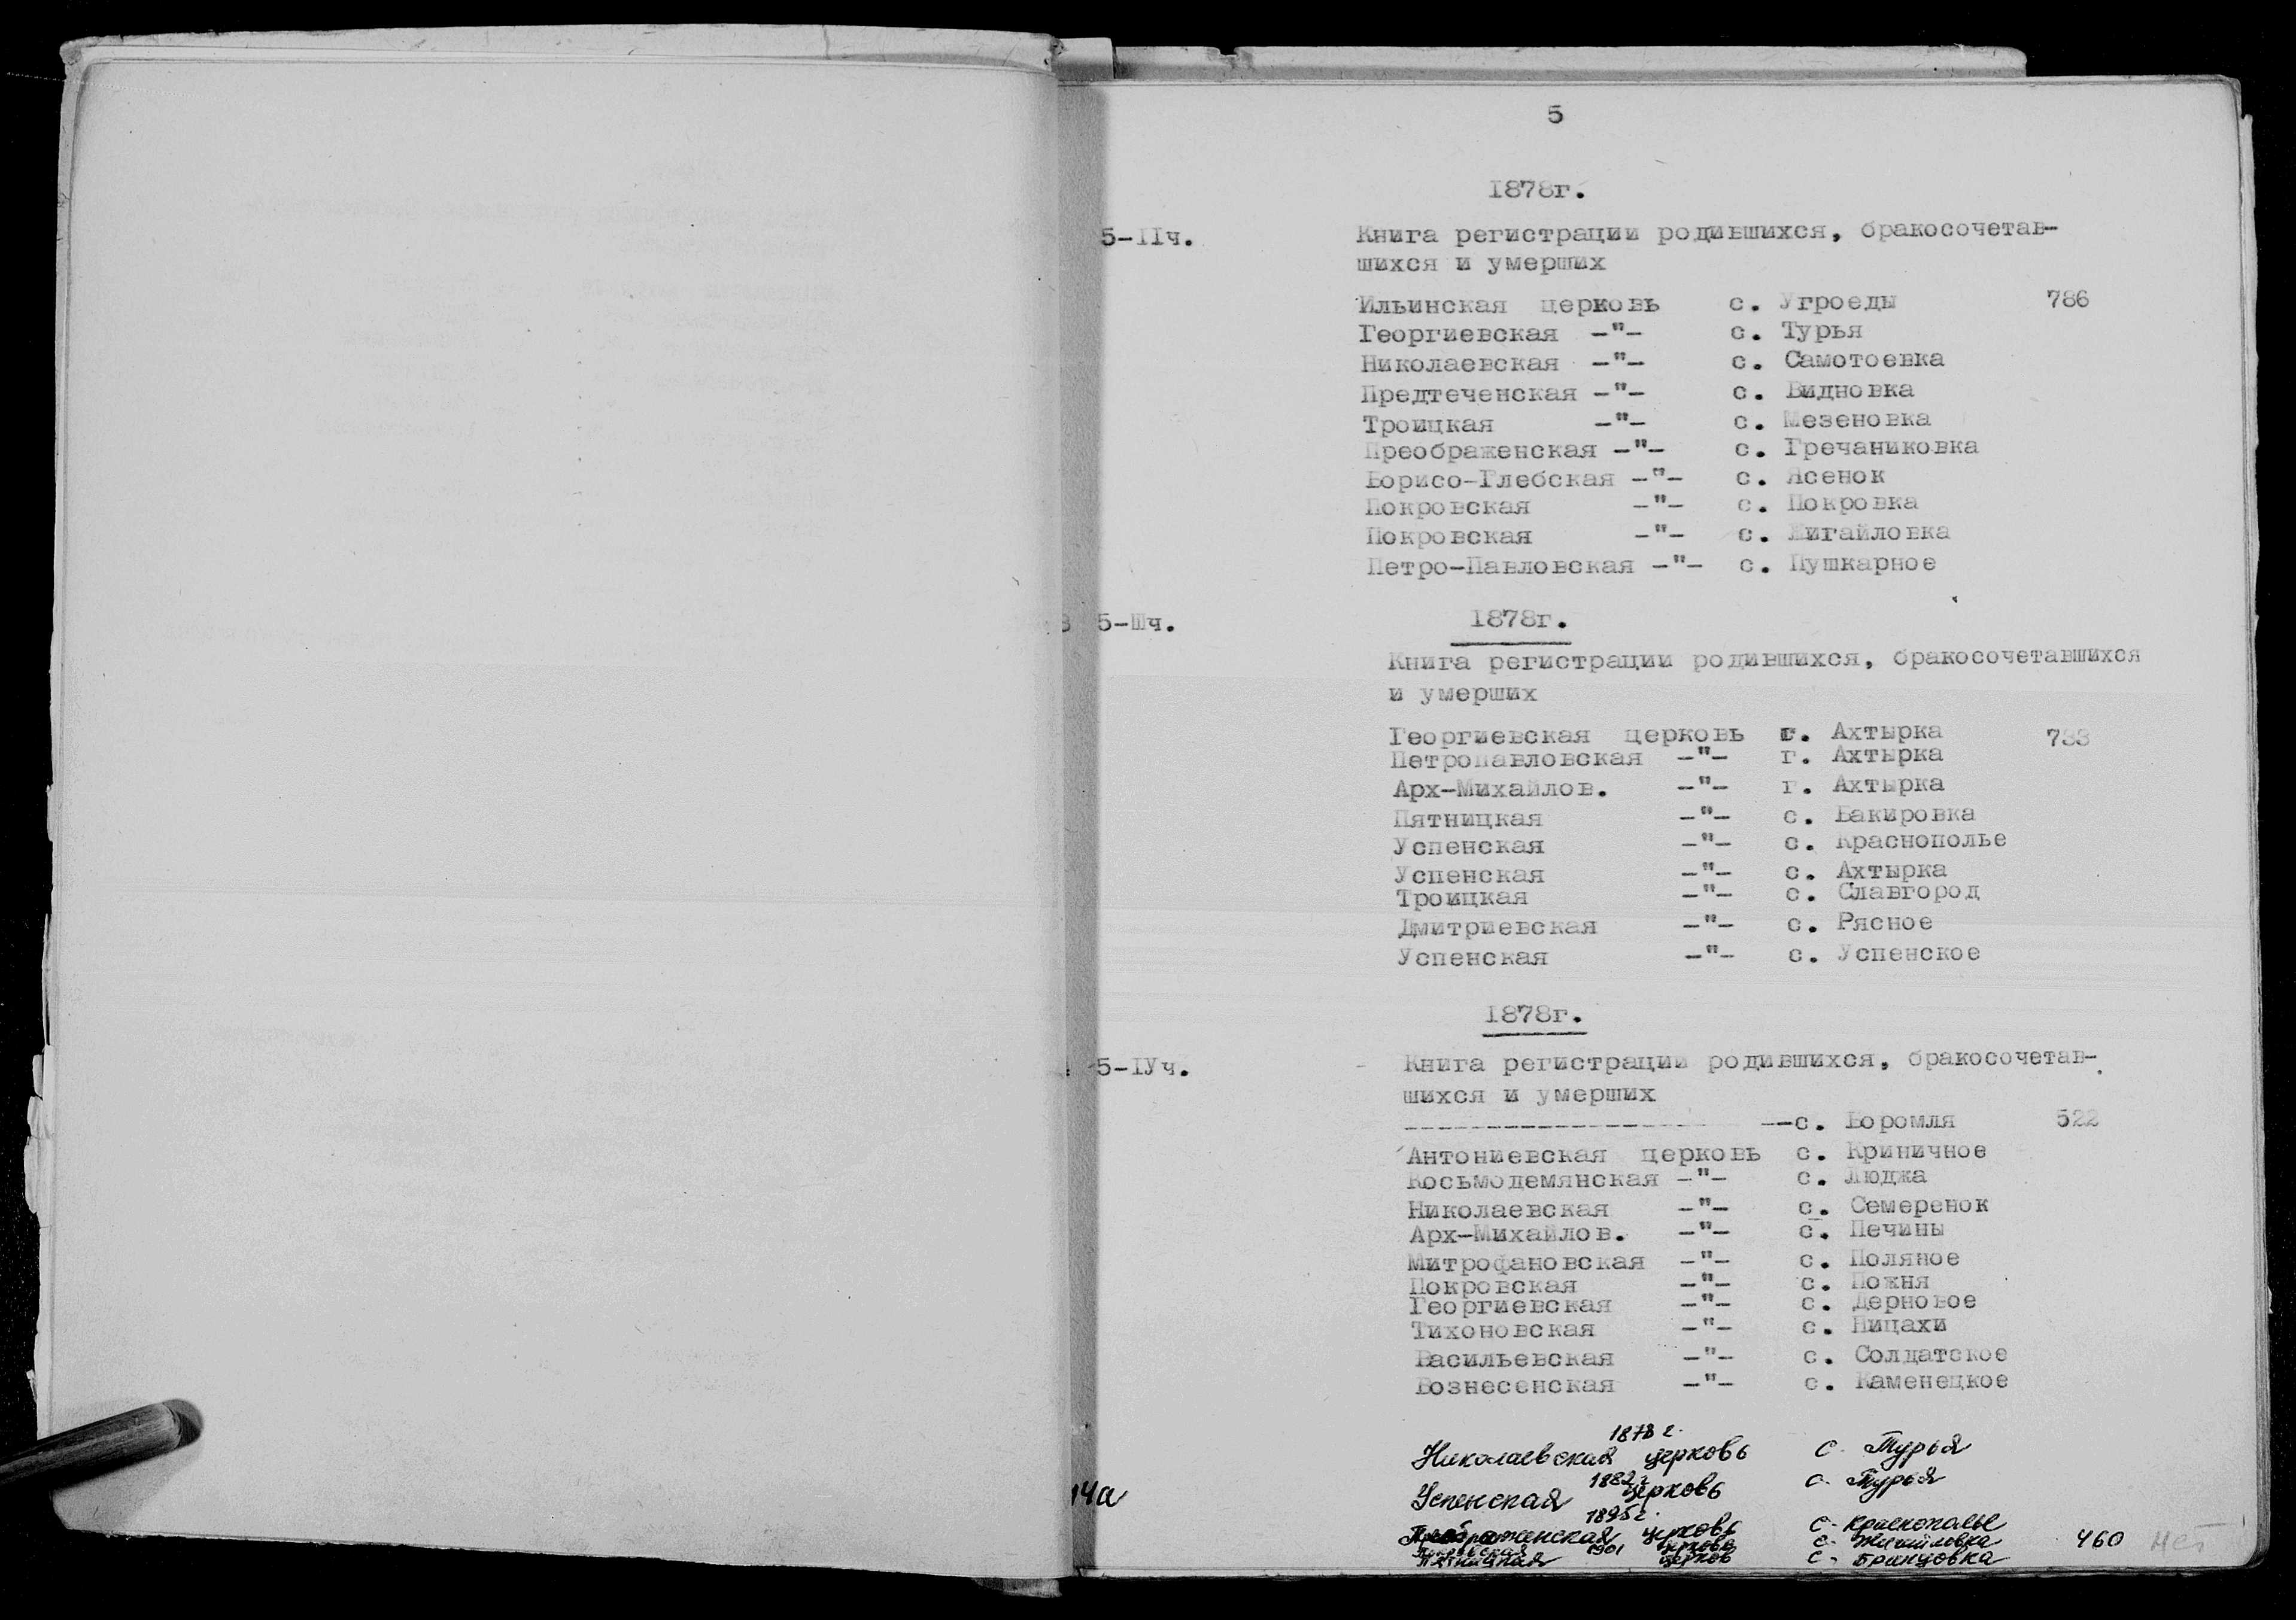 5
1878г.
5-IIч. Книга регистрации родившихся, бракосочетав-
шихся и умерших
Ильинская церковь с. Угроеды 786
Георгиевская -"- с. Турья
Николаевская -"- с. Самотоевка
Предтеченская -"- с. Видновка
Троицкая -"- с. Мезеновка
Преображенская -"- с. Гречаниковка
Борисо-Глебская -"- с. Ясенок
Покровская -"- с. Покровка
Покровская -"- с. Жигайловка
Петро-Павловская -"- с. Пушкарное
1878г.
5-Шч.
Книга регистрации родившихся, бракосочетавшихся
и умерших
Георгиевская церковь г. Ахтырка 733
Петропавловская -"- г. Ахтырка
Арх-Михайлов. -"- г. Ахтырка
Пятницкая -"- с. Бакировка
Успенская -"- с. Краснополье
Успенская -"- с. Ахтырка
Троицкая -"- с. Славгород
Дмитриевская -"- с. Рясное
Успенская -"- с. Успенское
1878г.
5-IУч. Книга регистрации родившихся, бракосочетав-
шихся и умерших
------------------ --с. Боромля 522
Антониевская церковь с. Криничное
Косьмодемянская -"- с. Люджа
Николаевская -"- с. Семеренок
Арх-Михайлов. -"- с. Печины
Митрофановская -"- с. Поляное
Покровская -"- с. Пожня
Георгиевская -"- с. Дерновое
Тихоновская -"- с. Ницахи
Васильевская -"- с. Солдатское
Вознесенская -"- с. Каменецкое
1878 г.
Николаевская церковь с. Турья
1882г
Успенская церковь с. Турья
1895г.
Преображенская церковь с. Краснополье
Покровская 1901 церковь с. Жигайловка 460 нет
Пятницкая церков с.